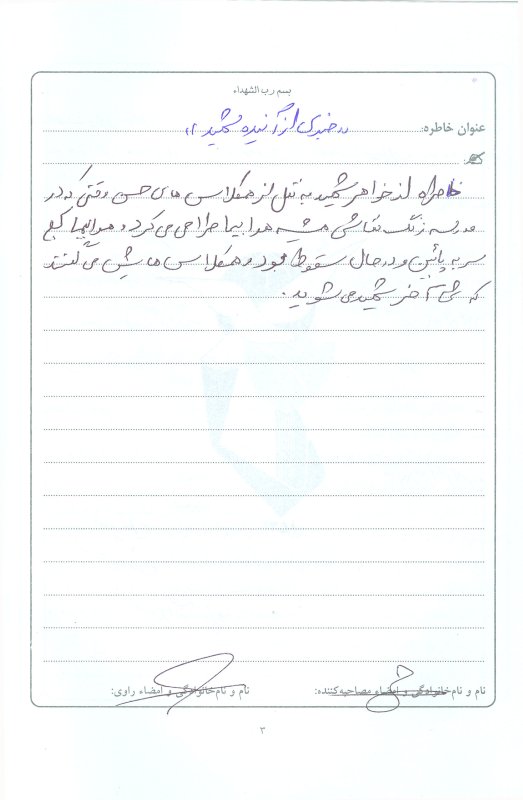 بسم رب الشهداء
عنوان خاطره: «خبری از آینده شهید»
خاطره از خواهر شهید به نقل از همکلاس های حسن وقتی که در
مدرسه زنگ نقاشی میشه هواپیما طراحی می کرد و هواپیما کج
سر به پائین و در حال سقوط بود و همکلاس هایش می گفتند
که شما آخر شهید می شوید.
نام و نام‌خانوادگی و امضاء مصاحبه‌کننده:
نام و نام‌خانوادگی و امضاء راوی:
۳